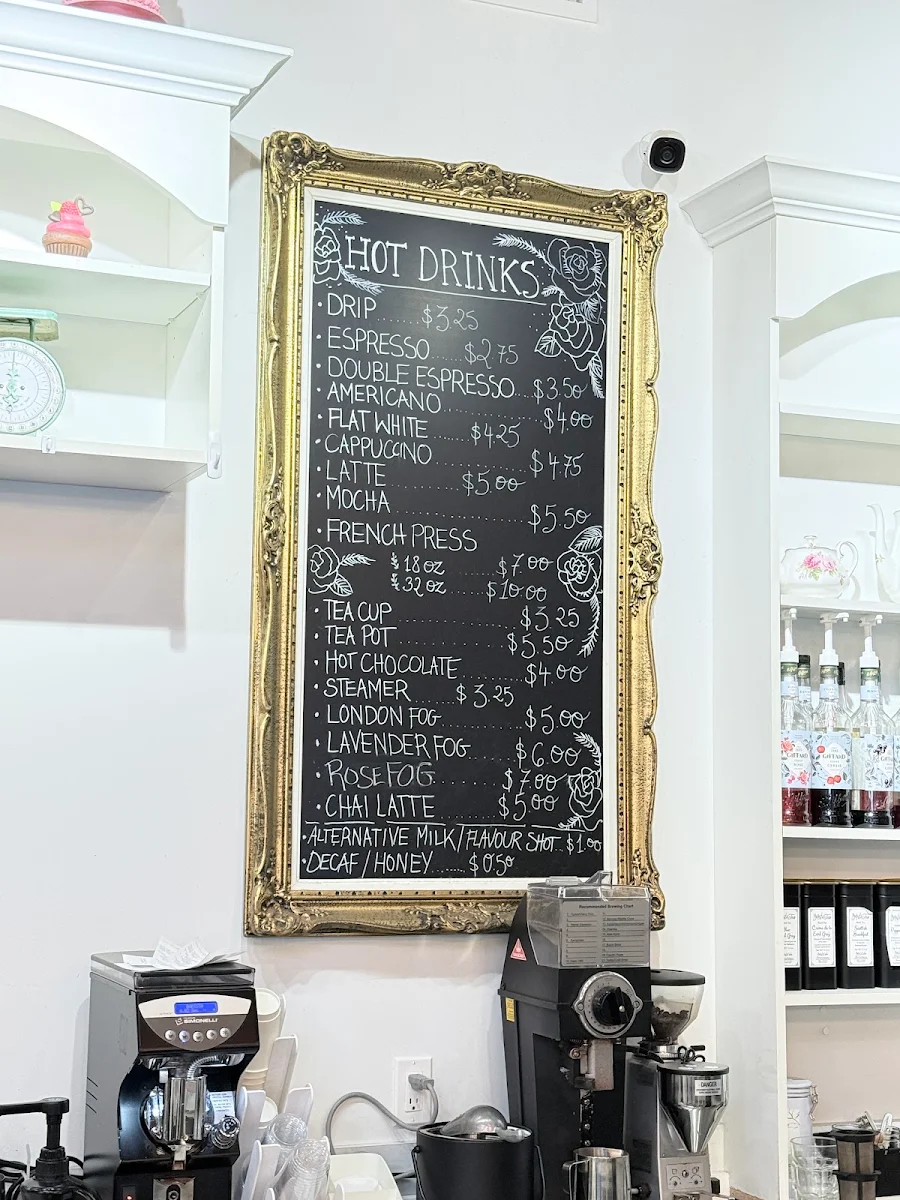 HOT DRINKS
• DRIP ..... $3.25
• ESPRESSO ..... $2.75
• DOUBLE ESPRESSO ... $3.50
• AMERICANO ..... $4.00
• FLAT WHITE ..... $4.25
• CAPPUCCINO ..... $4.75
• LATTE ..... $5.00
• MOCHA ..... $5.50
• FRENCH PRESS
18 oz ..... $7.00
32 oz ..... $10.00
• TEA CUP ..... $3.25
• TEA POT ..... $5.50
• HOT CHOCOLATE ..... $4.00
• STEAMER $3.25
• LONDON FOG ..... $5.00
• LAVENDER FOG ..... $6.00
• ROSE FOG ..... $7.00
• CHAI LATTE ..... $5.00
• ALTERNATIVE MILK / FLAVOUR SHOT .. $1.00
• DECAF / HONEY ..... $0.50
GIFFARD
Scottish Breakfast
Recommended Brewing Chart
SIMONELLI
DANGER